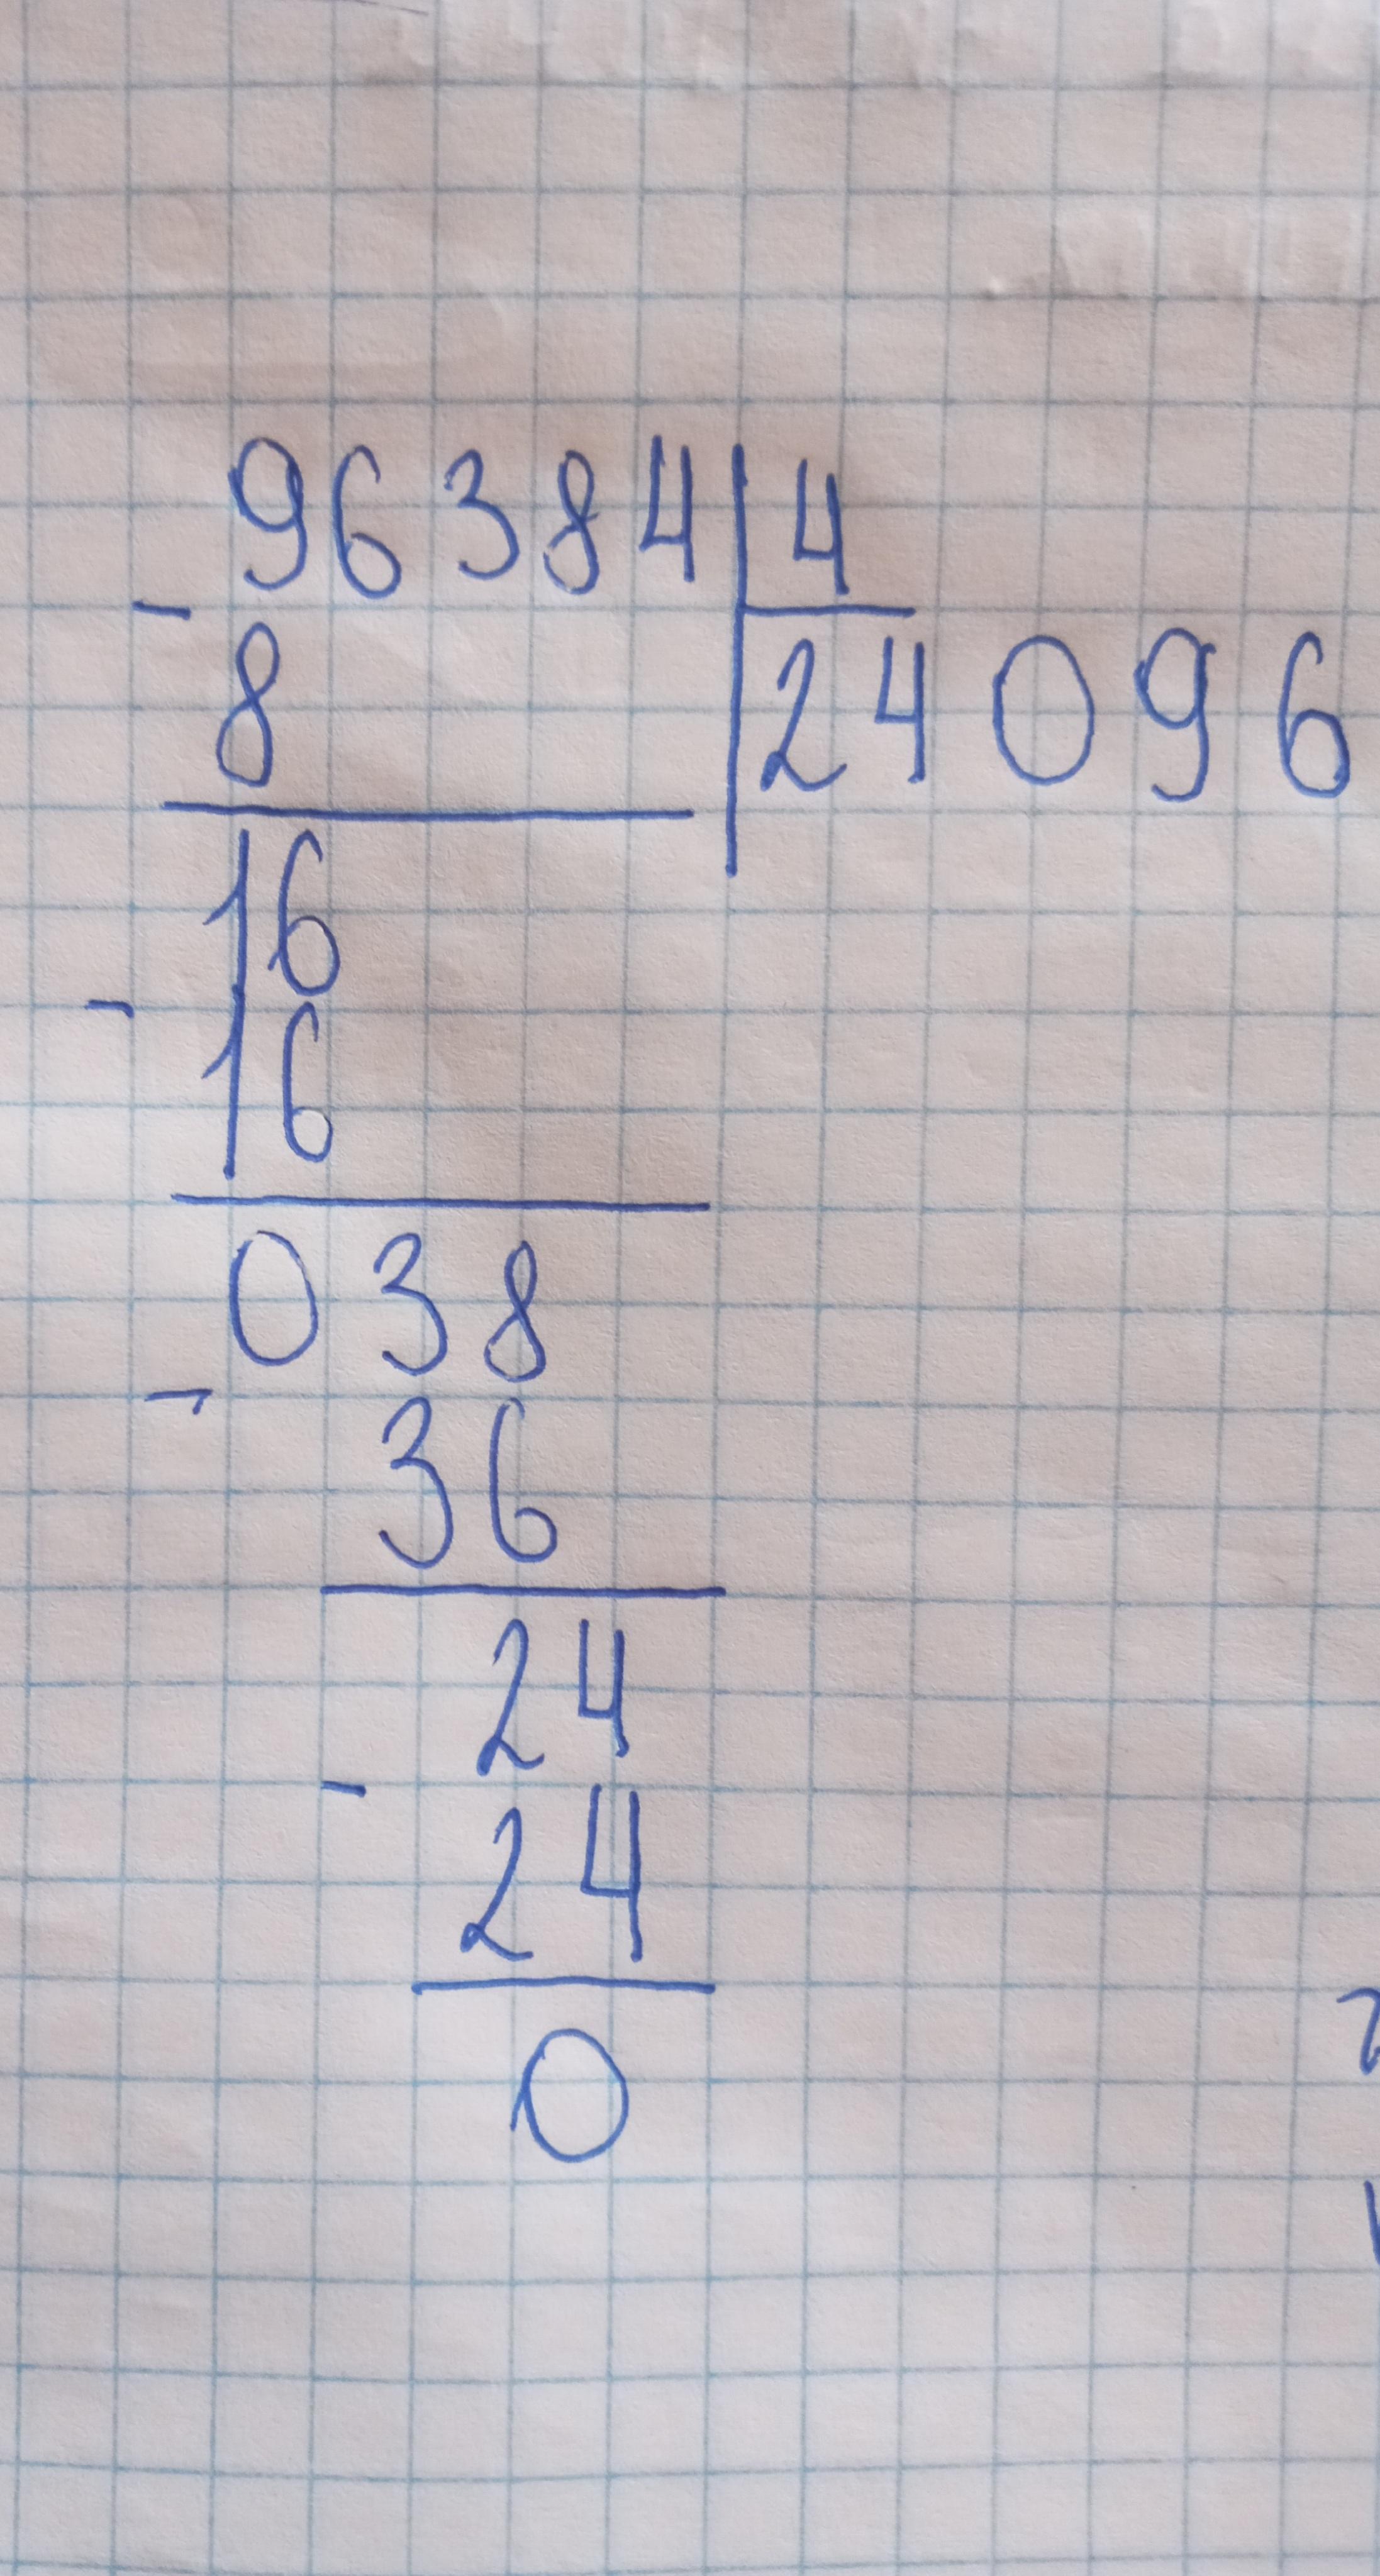 96384 4
- 8 24096
16
- 16
038
- 36
24
- 24
0